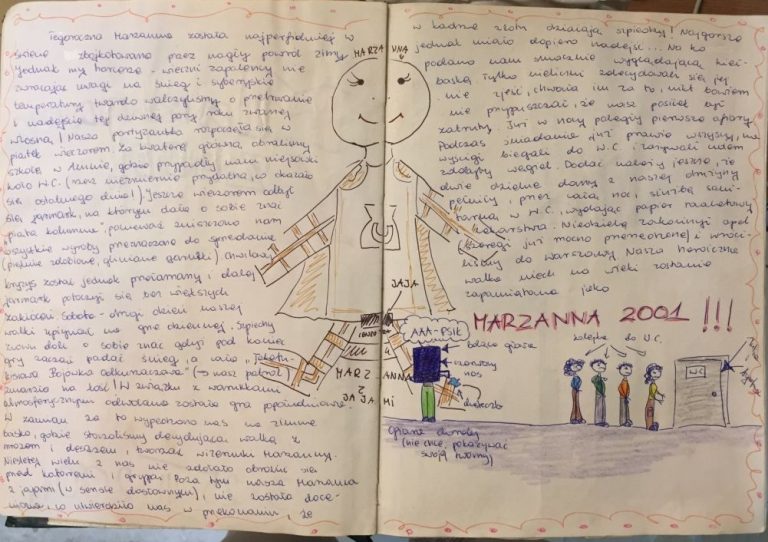 Tegoroczna Marzanna została najperfidniej w
świecie zbojkotowana przez nagły powrót zimy.
Jednak my harcerze - wieczni zapaleńcy nie
zwracając uwagi na śnieg i syberyjskie
temperatury twardo walczyliśmy o przetrwanie
i nadejście tej dawnej pory roku zwanej
wiosną! Nasza partyzantka rozpoczęła się w
piątek wieczorem. Za kwaterę główną obraliśmy
szkołę w, gdzie przypadły nam miejscówki
koło W.C. (rzecz niezmiernie przydatna, co okazało
się ostatniego dnia!) Jeszcze wieczorem odbył
się jarmark, na którym dała o sobie znać
"piąta kolumna", ponieważ zniszczono nam
wszystkie wyroby przeznaczone do sprzedania
(pięknie zdobione, gliniane garnuszki) Chwilowy
kryzys został jednak przełamany i dalej
jarmark potoczył się bez większych
zakłóceń. Sobota - drugi dzień naszej
walki upłynął na grze dziennej. Szpiedzy
znowu dali o sobie znać gdyż pod koniec
gry zaczął padać śnieg, a cała
Bojówka (→ nasz patrol)
zmarzła na kość! W związku z warunkami
atmosferycznymi odwołana została gra popołudniowa.
W zamian za to wypędzono nas na zimne
boisko, gdzie stoczyliśmy decydującą walkę z
mrozem i deszczem, tworząc wizerunki Marzanny.
Niestety wielu z nas nie zdołało obronić się
przed katarem i grypą. Poza tym nasza Marzanna
z jajami (w sensie dosłownym), nie została doce-
niona, co utwierdziło nas w przekonaniu, że
MARZANNA
JAJA
MARZANNA
Z
JAJAMI
w kadrze złotu działają szpiedzy! Najgorsze
jednak miało dopiero nadejść... Na
podano nam smacznie wyglądającą kieł-
baskę. Tylko nieliczni zdecydowali się jej
nie zjeść, chwała im za to, nikt bowiem
nie przypuszczał, że nasz posiłek był
zatruty. Już w nocy polegli pierwsze ofiary.
Podczas śniadania już prawie wszyscy na
wyścigi biegali do W.C. i
zdobyty węgiel. Dodać należy jeszcze, że
dwie dzielne damy z naszej drużyny
pełniły, przez całą noc, służbę sani-
tarną w W.C., wydając papier toaletowy
i lekarstwa. Niedzielę zakończył apel
(szeregi już mocno przerzedzone) i wróci-
liśmy do Warszawy. Nasza heroiczna
walka niech na wieki zostanie
zapamiętana jako
MARZANNA 2001!!!
AAA-PSIK
bolące gardło
czerwony
nos
chusteczka
(nie chce pokazywać
swojej twarzy)
kolejka do W.C.
WC